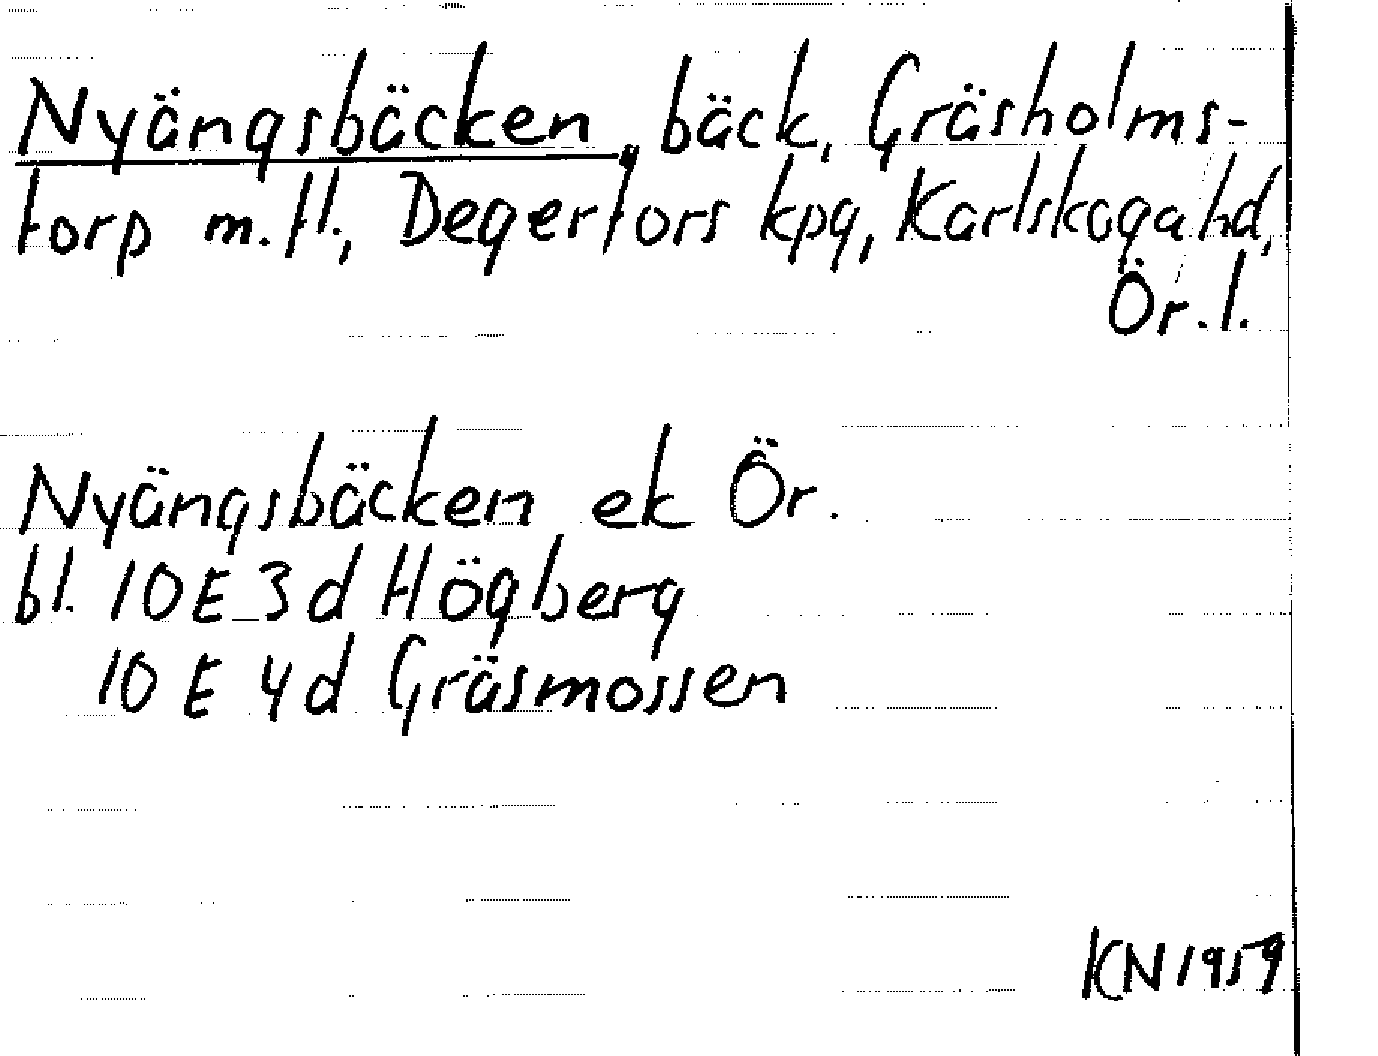 Nyängsbäcken, bäck, Gräsholms-
torp m.fl., Degerfors kpg, Karlskoga hd,
Ör. l.
Nyängsbäcken ek Ör.
bl. 10 E 3 d Högberg
10 E 4 d Gräsmossen
KN 1959